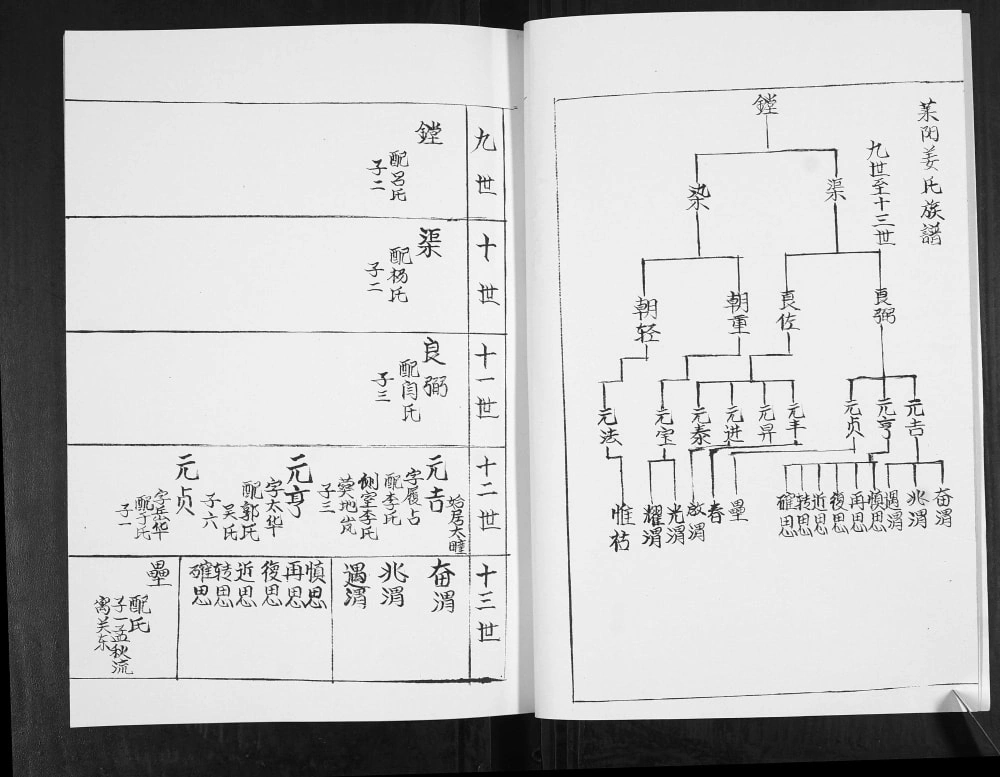 莱阳姜氏族譜
九世至十三世
鏜
渠
染
良弼
良佐
朝重
朝轻
元吉
元亨
元贞
元丰
元昇
元进
元泰
元宝
元法
奋渭
兆渭
遇渭
慎思
再思
復思
近思
转思
確思
壘
春
啟渭
光渭
耀渭
惟祜
九世
鏜
配呂氏
子二
十世
渠
配杨氏
子二
十一世
良弼
配闫氏
子三
十二世
元吉
始居太疃
字履占
配李氏
侧室李氏
葬地岚
子三
元亨
字太华
配郭氏
吴氏
子六
元贞
字岳华
配于氏
子一
十三世
奋渭
兆渭
遇渭
慎思
再思
復思
近思
转思
確思
壘
配氏
子一孟秋流
寓关东